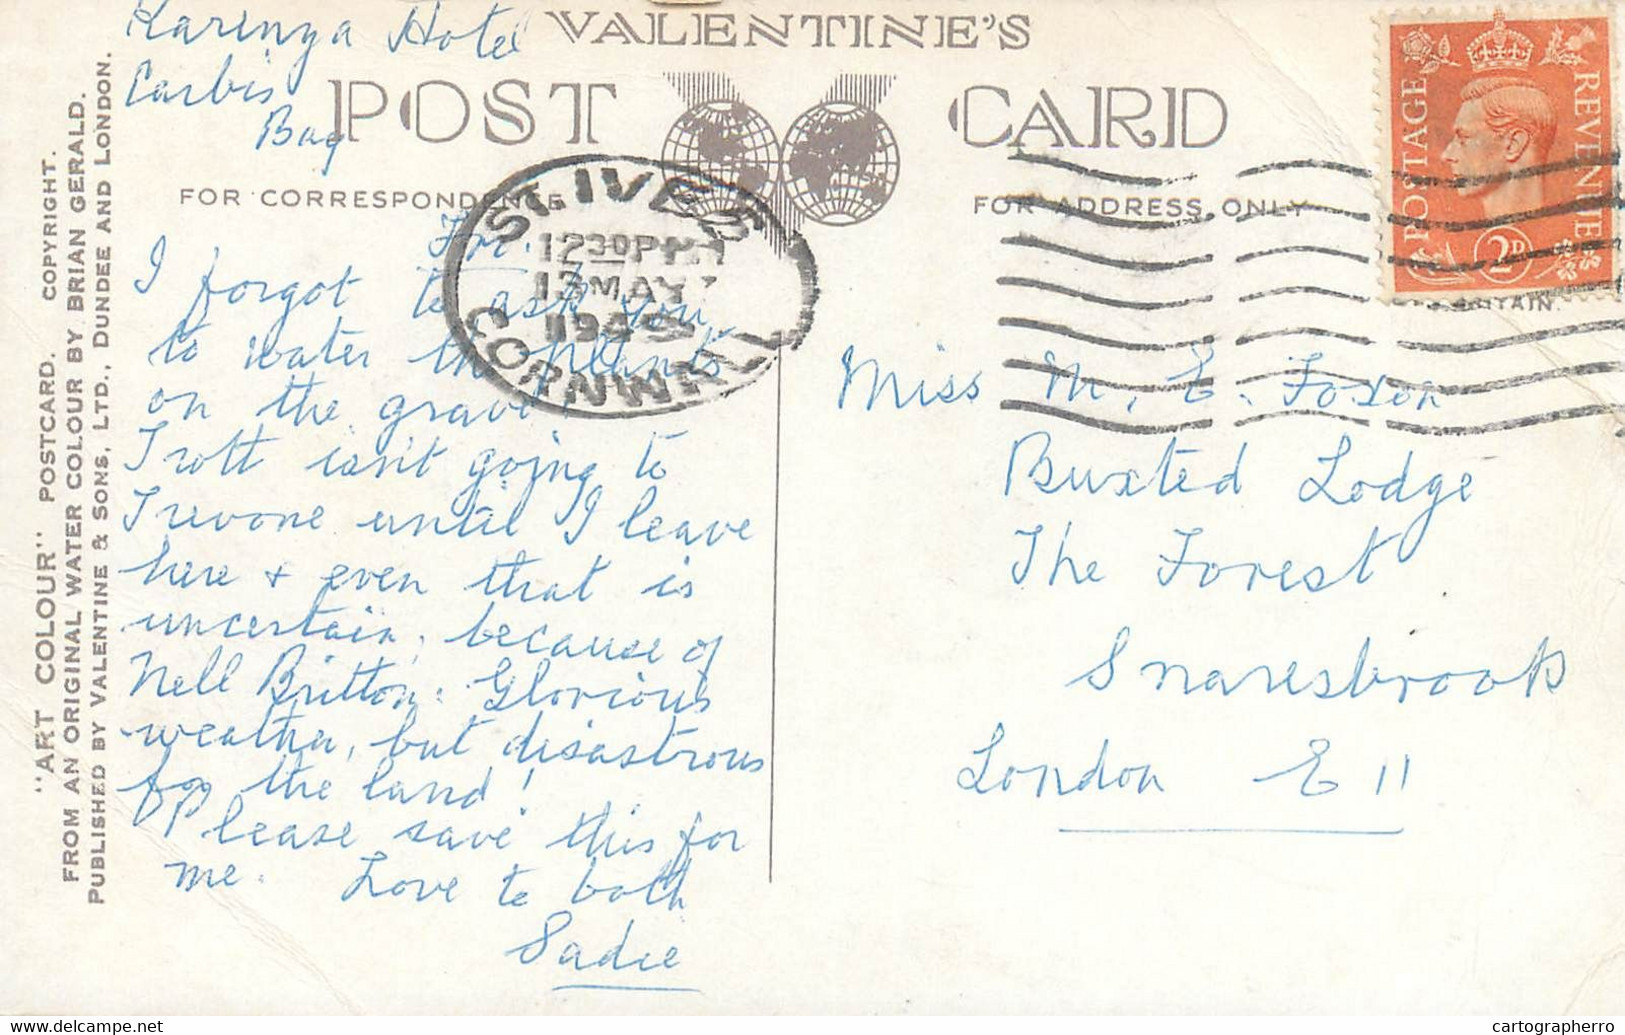 Karenza Hotel
Carbis
Bay
VALENTINE'S
POST CARD
FOR CORRESPONDENCE
FOR ADDRESS ONLY
POSTAGE
REVENUE
2D
ST. IVES
12 30 PM
13 MAY
CORNWALL
Fri.
I forgot to ask you
to water the plants
on the grave!
Trott isn't going to
Trevone until I leave
here + even that is
uncertain, because of
Nell Britton. Glorious
weather, but disastrous
for the land!
Please save this for
me. Love to both
Sadie
Miss M. E. Foxon
Buxted Lodge
The Forest
Snaresbrook
London E 11
"ART COLOUR" POSTCARD. COPYRIGHT.
FROM AN ORIGINAL WATER COLOUR BY BRIAN GERALD.
PUBLISHED BY VALENTINE & SONS, LTD., DUNDEE AND LONDON.
cartographerro